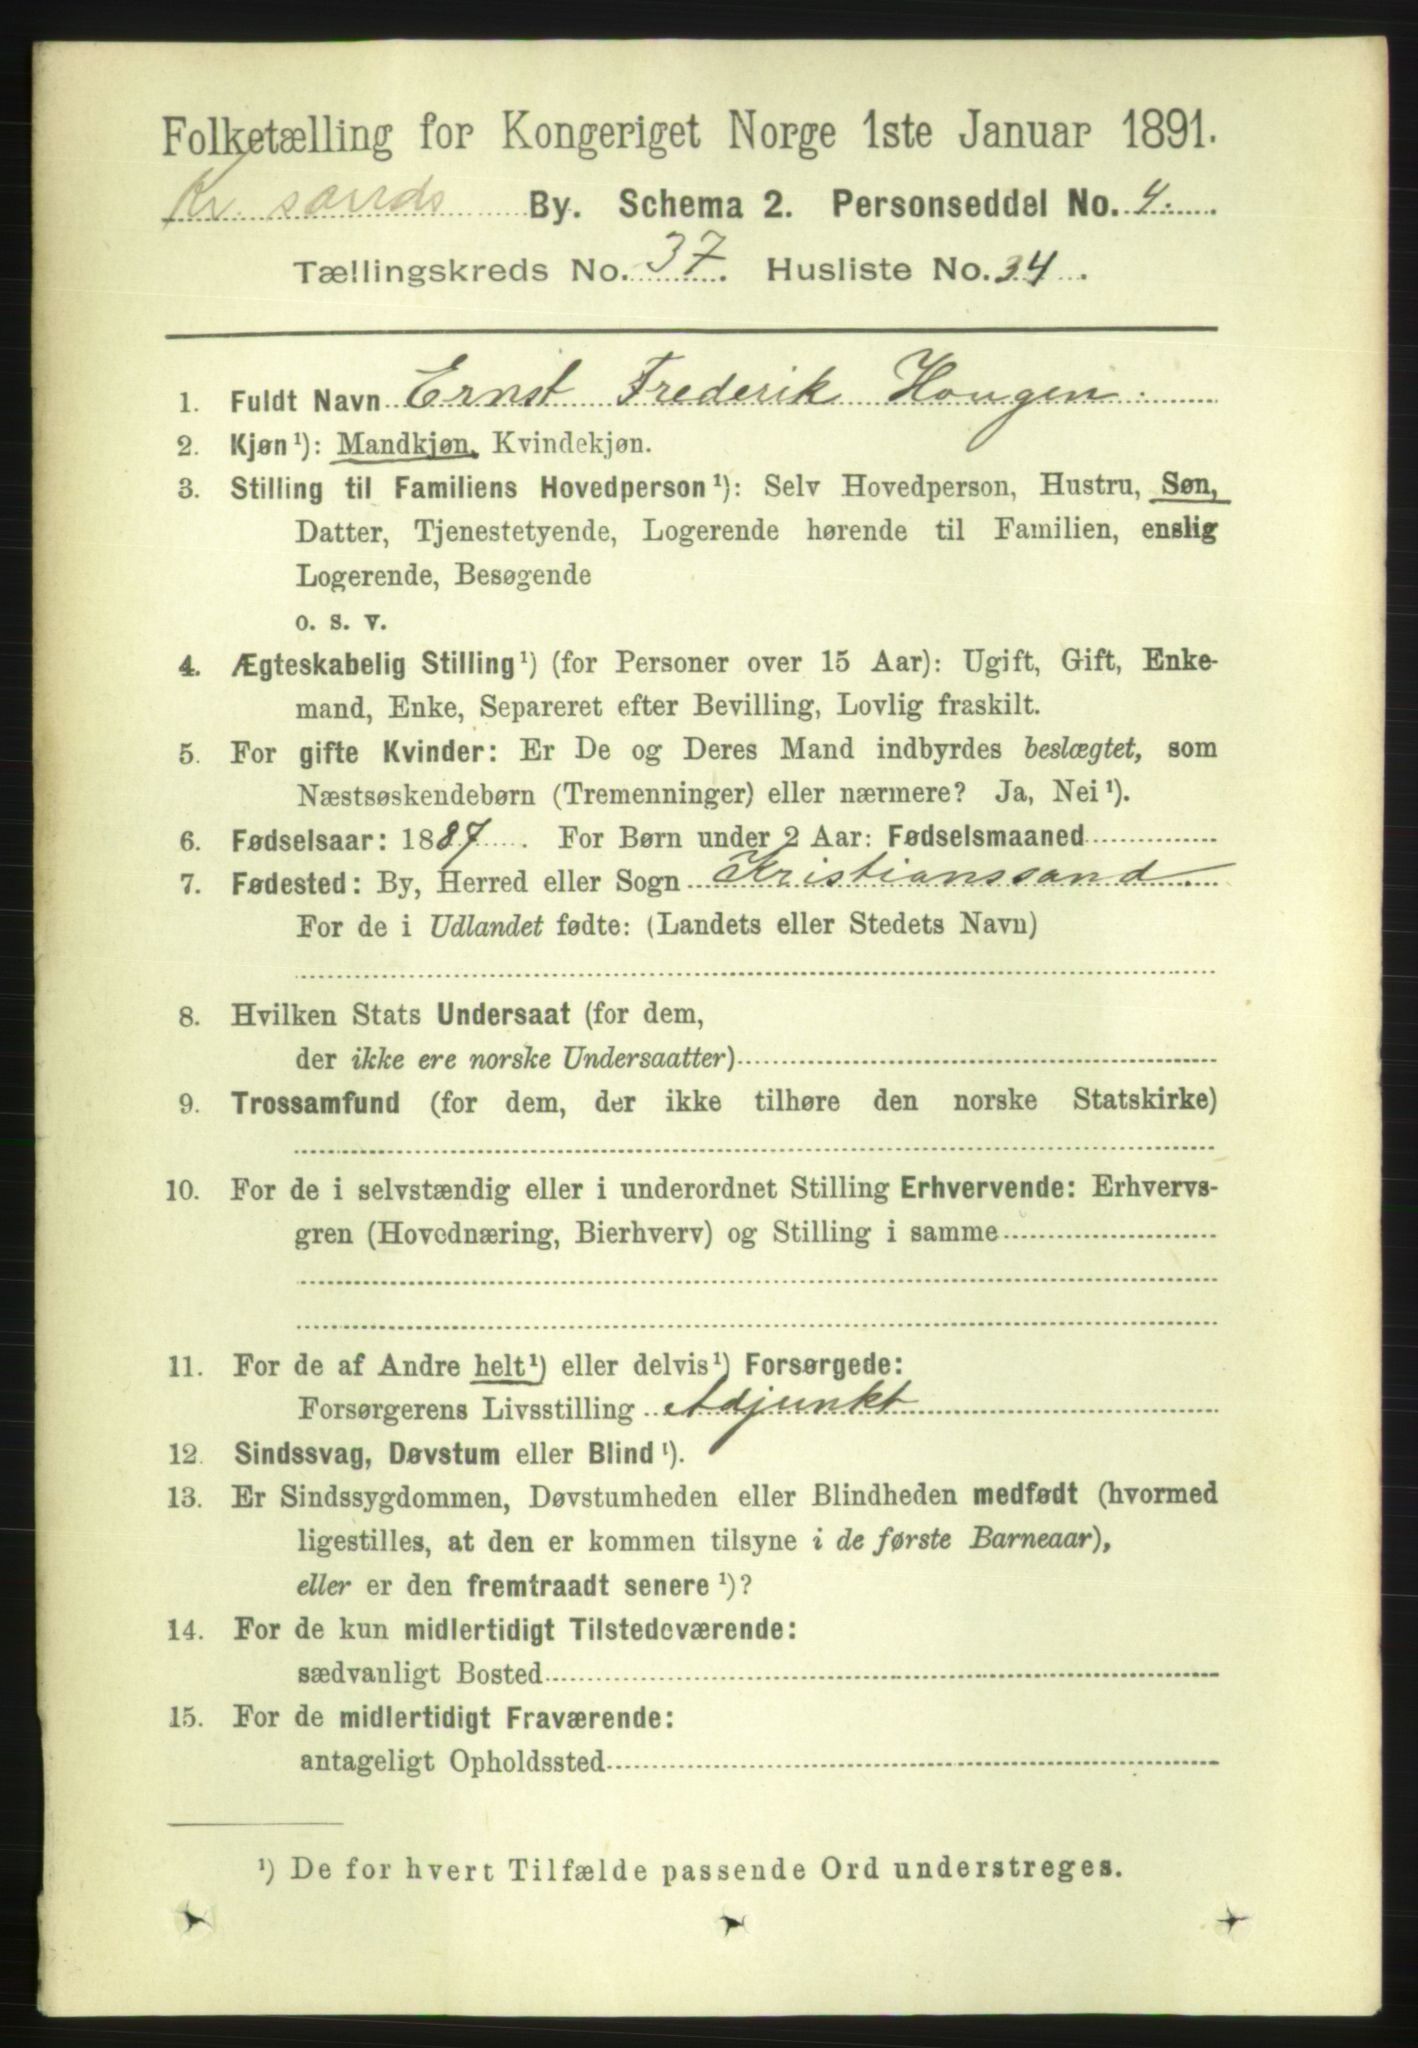 Folketælling for Kongeriget Norge 1ste Januar 1891.
Kr. sands By. Schema 2. Personseddel No. 4.
Tællingskreds No. 37. Husliste No. 34.
1. Fuldt Navn Ernst Frederik Hougen
2. Kjøn¹): Mandkjøn, Kvindekjøn.
3. Stilling til Familiens Hovedperson¹): Selv Hovedperson, Hustru, Søn,
Datter, Tjenestetyende, Logerende hørende til Familien, enslig
Logerende, Besøgende
o. s. v.
4. Ægteskabelig Stilling¹) (for Personer over 15 Aar): Ugift, Gift, Enke-
mand, Enke, Separeret efter Bevilling, Lovlig fraskilt.
5. For gifte Kvinder: Er De og Deres Mand indbyrdes beslægtet, som
Næstsøskendebørn (Tremenninger) eller nærmere? Ja, Nei¹).
6. Fødselsaar: 1887. For Børn under 2 Aar: Fødselsmaaned
7. Fødested: By, Herred eller Sogn Kristianssand.
For de i Udlandet fødte: (Landets eller Stedets Navn)
8. Hvilken Stats Undersaat (for dem,
der ikke ere norske Undersaatter)
9. Trossamfund (for dem, der ikke tilhøre den norske Statskirke)
10. For de i selvstændig eller i underordnet Stilling Erhvervende: Erhvervs-
gren (Hovednæring, Bierhverv) og Stilling i samme
11. For de af Andre helt¹) eller delvis¹) Forsørgede:
Forsørgerens Livsstilling Adjunkt
12. Sindssvag, Døvstum eller Blind¹).
13. Er Sindssygdommen, Døvstumheden eller Blindheden medfødt (hvormed
ligestilles, at den er kommen tilsyne i de første Barneaar),
eller er den fremtraadt senere¹)?
14. For de kun midlertidigt Tilstedeværende:
sædvanligt Bosted
15. For de midlertidigt Fraværende:
antageligt Opholdssted
¹) De for hvert Tilfælde passende Ord understreges.